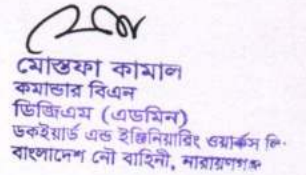 মোস্তফা কামাল
কমান্ডার বিএন
ডিজিএম (এডমিন)
ডকইয়ার্ড এন্ড ইঞ্জিনিয়ারিং ওয়ার্কস লি·
বাংলাদেশ নৌ বাহিনী, নারায়ণগঞ্জ